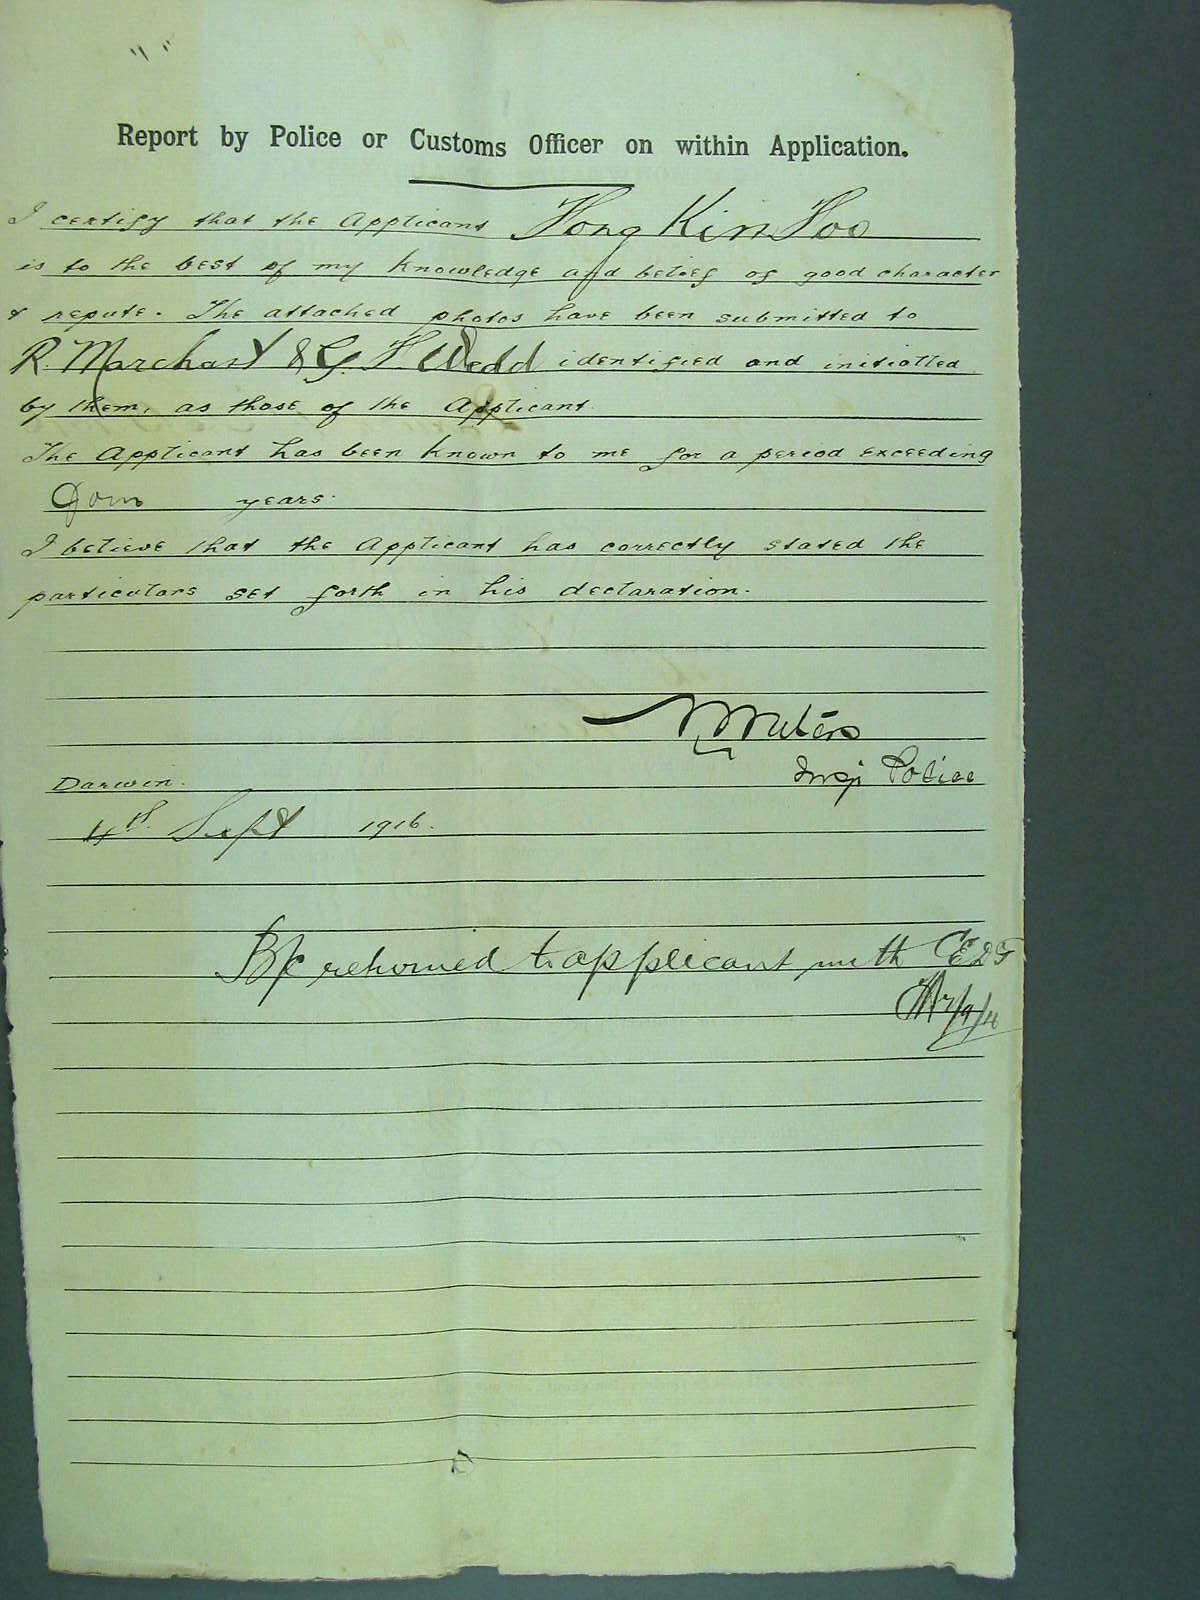 Report by Police or Customs Officer on within Application.
I certify that the Applicant Fong Kin Foo
is to the best of my knowledge and belief of good character
& repute. The attached photos have been submitted to
R. Marchant & G. F. Wedd identified and initialled
by them, as those of the Applicant.
The Applicant has been known to me for a period exceeding
years.
I believe that the Applicant has correctly stated the
particulars set forth in his declaration.
Insp Police
Darwin.
4th Sept 1916.
returned to applicant with CEDT